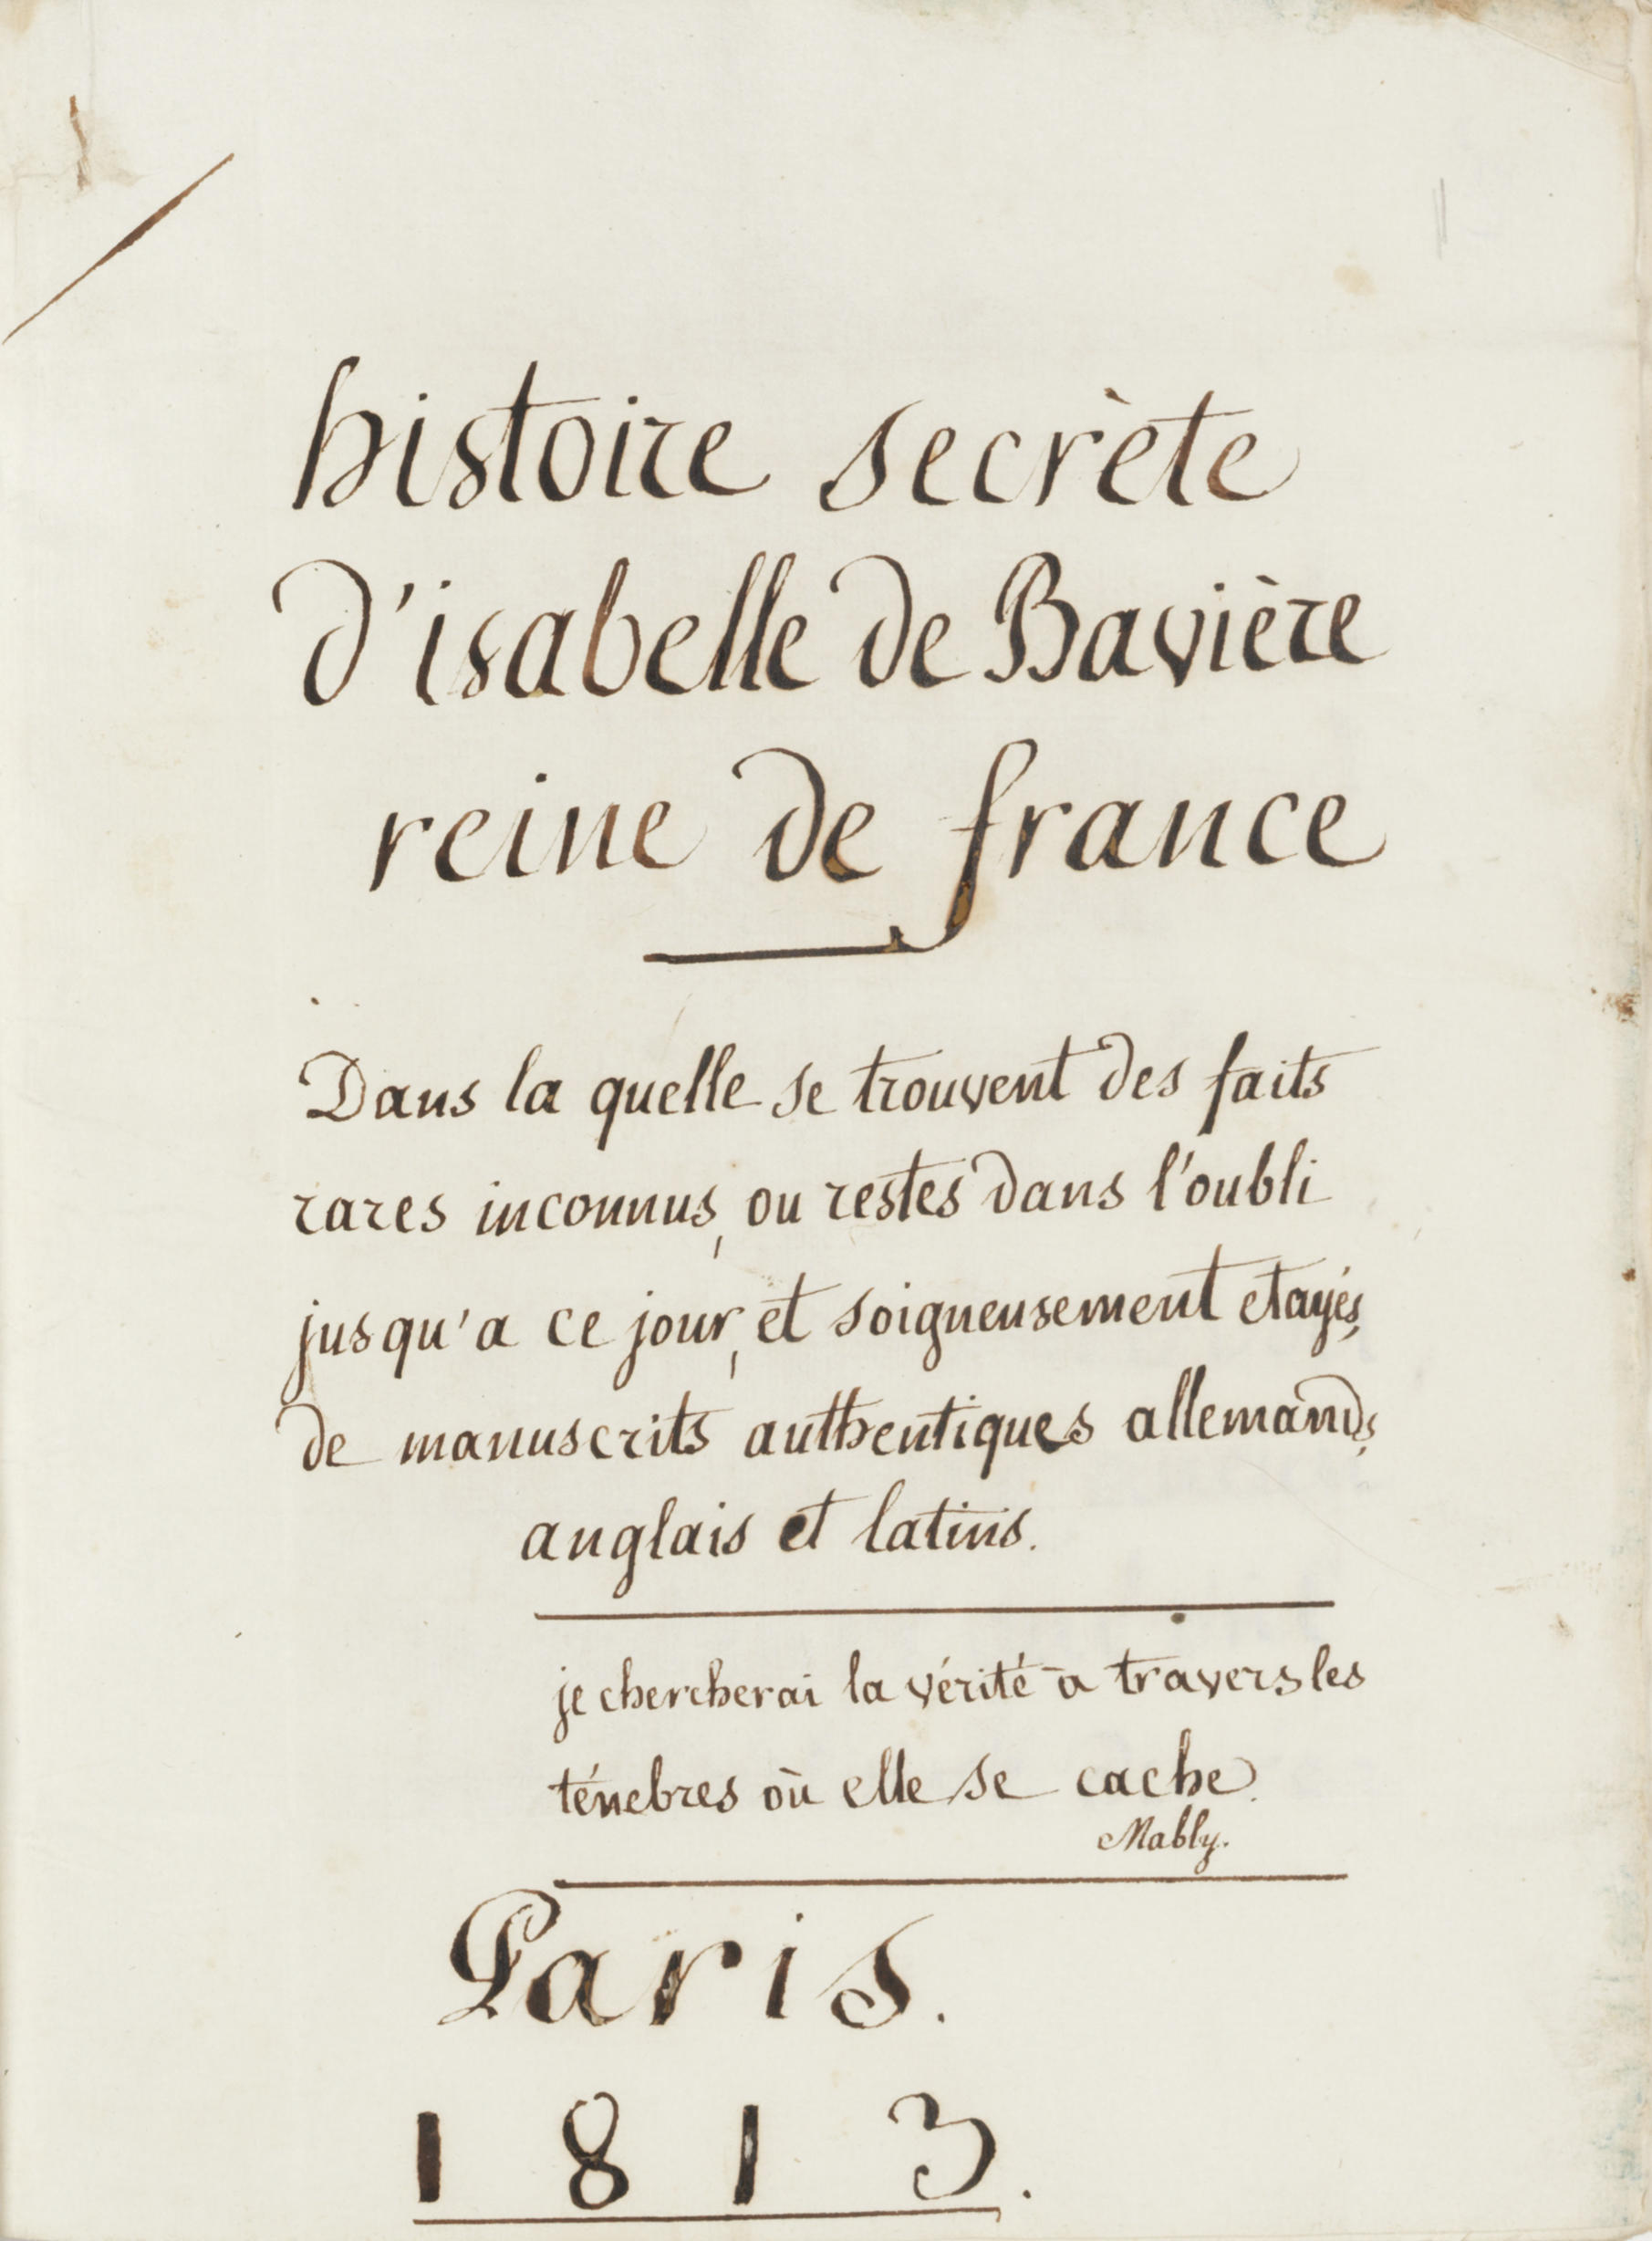 histoire secrète
d'isabelle de Bavière
reine de france
Dans la quelle se trouvent des faits
rares inconnus, ou restes dans l'oubli
jusqu'a ce jour, et soigneusement etayés,
de manuscrits authentiques allemands,
anglais et latins.
je chercherai la vérité à travers les
ténebres où elle se cache.
Mably.
Paris.
1813.